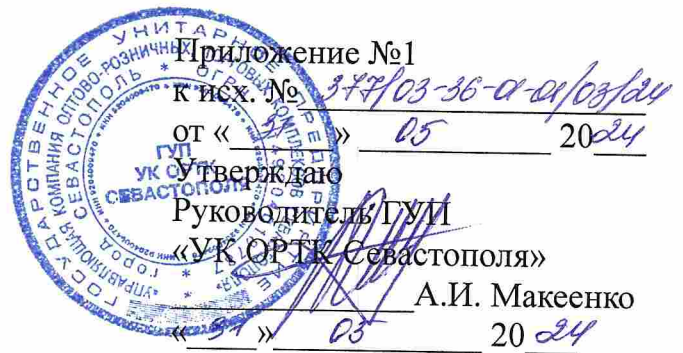 Приложение №1
к исх. № 377/03-36-01-01/03/24
от «31» 05 2024
Утверждаю
Руководитель ГУП
«УК ОРТК Севастополя»
А.И. Макеенко
«31» 05 2024
ГОСУДАРСТВЕННОЕ УНИТАРНОЕ ПРЕДПРИЯТИЕ
УПРАВЛЯЮЩАЯ КОМПАНИЯ ОПТОВО-РОЗНИЧНЫХ ТОРГОВЫХ КОМПЛЕКСОВ
ГОРОД СЕВАСТОПОЛЬ * ОГРН
ГУП
УК ОРТК
СЕВАСТОПОЛЯ